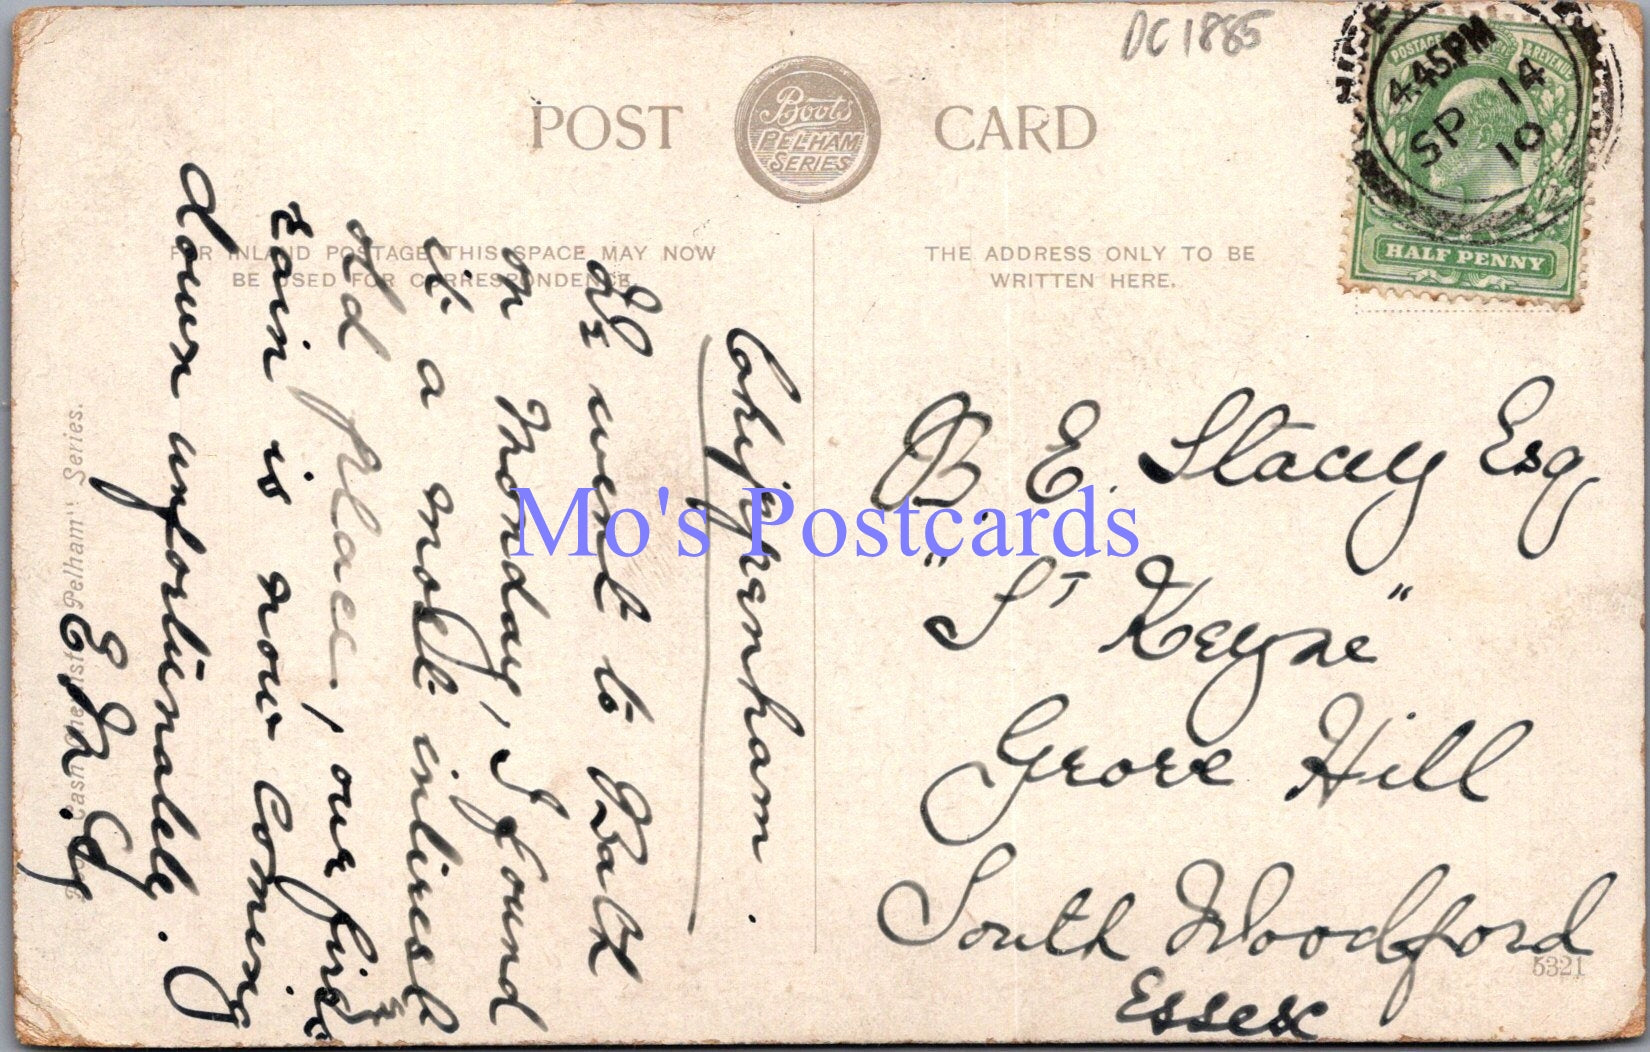 DC 1885
POST CARD
Boots
PELHAM
SERIES
POSTAGE & REVENUE
HALF PENNY
4.45PM
SP 14
10
FOR INLAND POSTAGE THIS SPACE MAY NOW
BE USED FOR CORRESPONDENCE.
THE ADDRESS ONLY TO BE
WRITTEN HERE.
Chippenham.
We went to Bath
on Monday, I found
it a most interest
old place, our first
rain is now coming
down unfortunately.
B. E. Stacey Esq
"St Keyne"
Grove Hill
South Woodford
Essex
5321
Pelham" Series.
Mo's Postcards